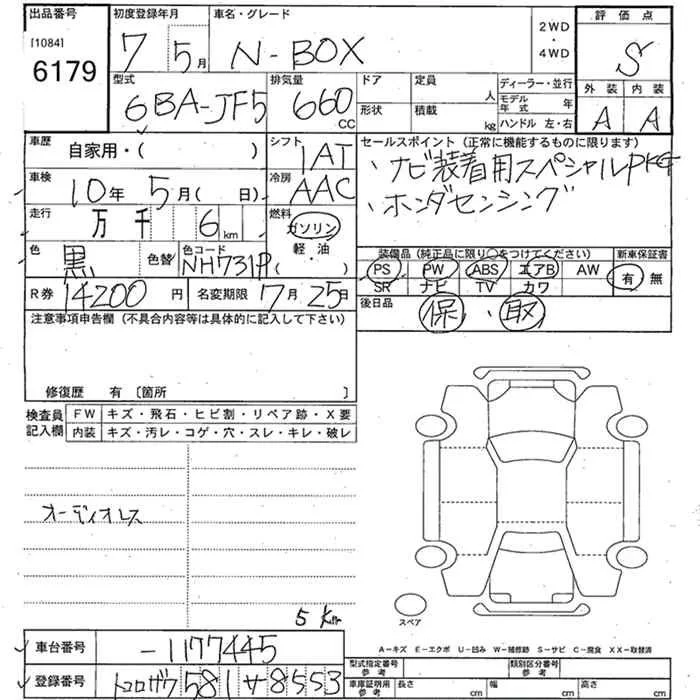 出品番号 初度登録年月 車名・グレード 2WD ・ 4WD 評価点
[1084] 6179 7 5月 N-BOX S
型式 排気量 ドア 定員 人 ディーラー・並行 外装 内装
6BA-JF5 660 CC 形状 積載 kg モデル年式 年 A A
ハンドル 左・右
車歴 自家用・( ) シフト 1AT セールスポイント (正常に機能するものに限ります)
車検 10年 5月( 日) 冷房 AAC ・ナビ装着用スペシャルPKG
走行 万 千 6 km 燃料 ガソリン ・ホンダセンシング
軽油 ・ ( )
色 黒 色替 色コード NH731P 装備品(純正品に限り○をつけてください) 新車保証書
PS PW ABS エアB AW 有 無
SR ナビ TV カワ
R券 14200円 名変期限 7月25日 後日品 保・取
注意事項申告欄 (不具合内容等は具体的に記入して下さい)
修復歴 有 〔箇所 〕
検査員記入欄 FW キズ・飛石・ヒビ割・リペア跡・X要
内装 キズ・汚レ・コゲ・穴・スレ・キレ・破レ
オーディオレス
5 Km
スペア
車台番号 -1177445 A-キズ E-エクボ U-凹み W-補修跡 S-サビ C-腐食 XX-取替済
登録番号 トコロザワ 581 サ 8553 型式指定番号 参考 類別区分番号 参考
車庫証明用 参考 長さ cm 幅 cm 高さ cm